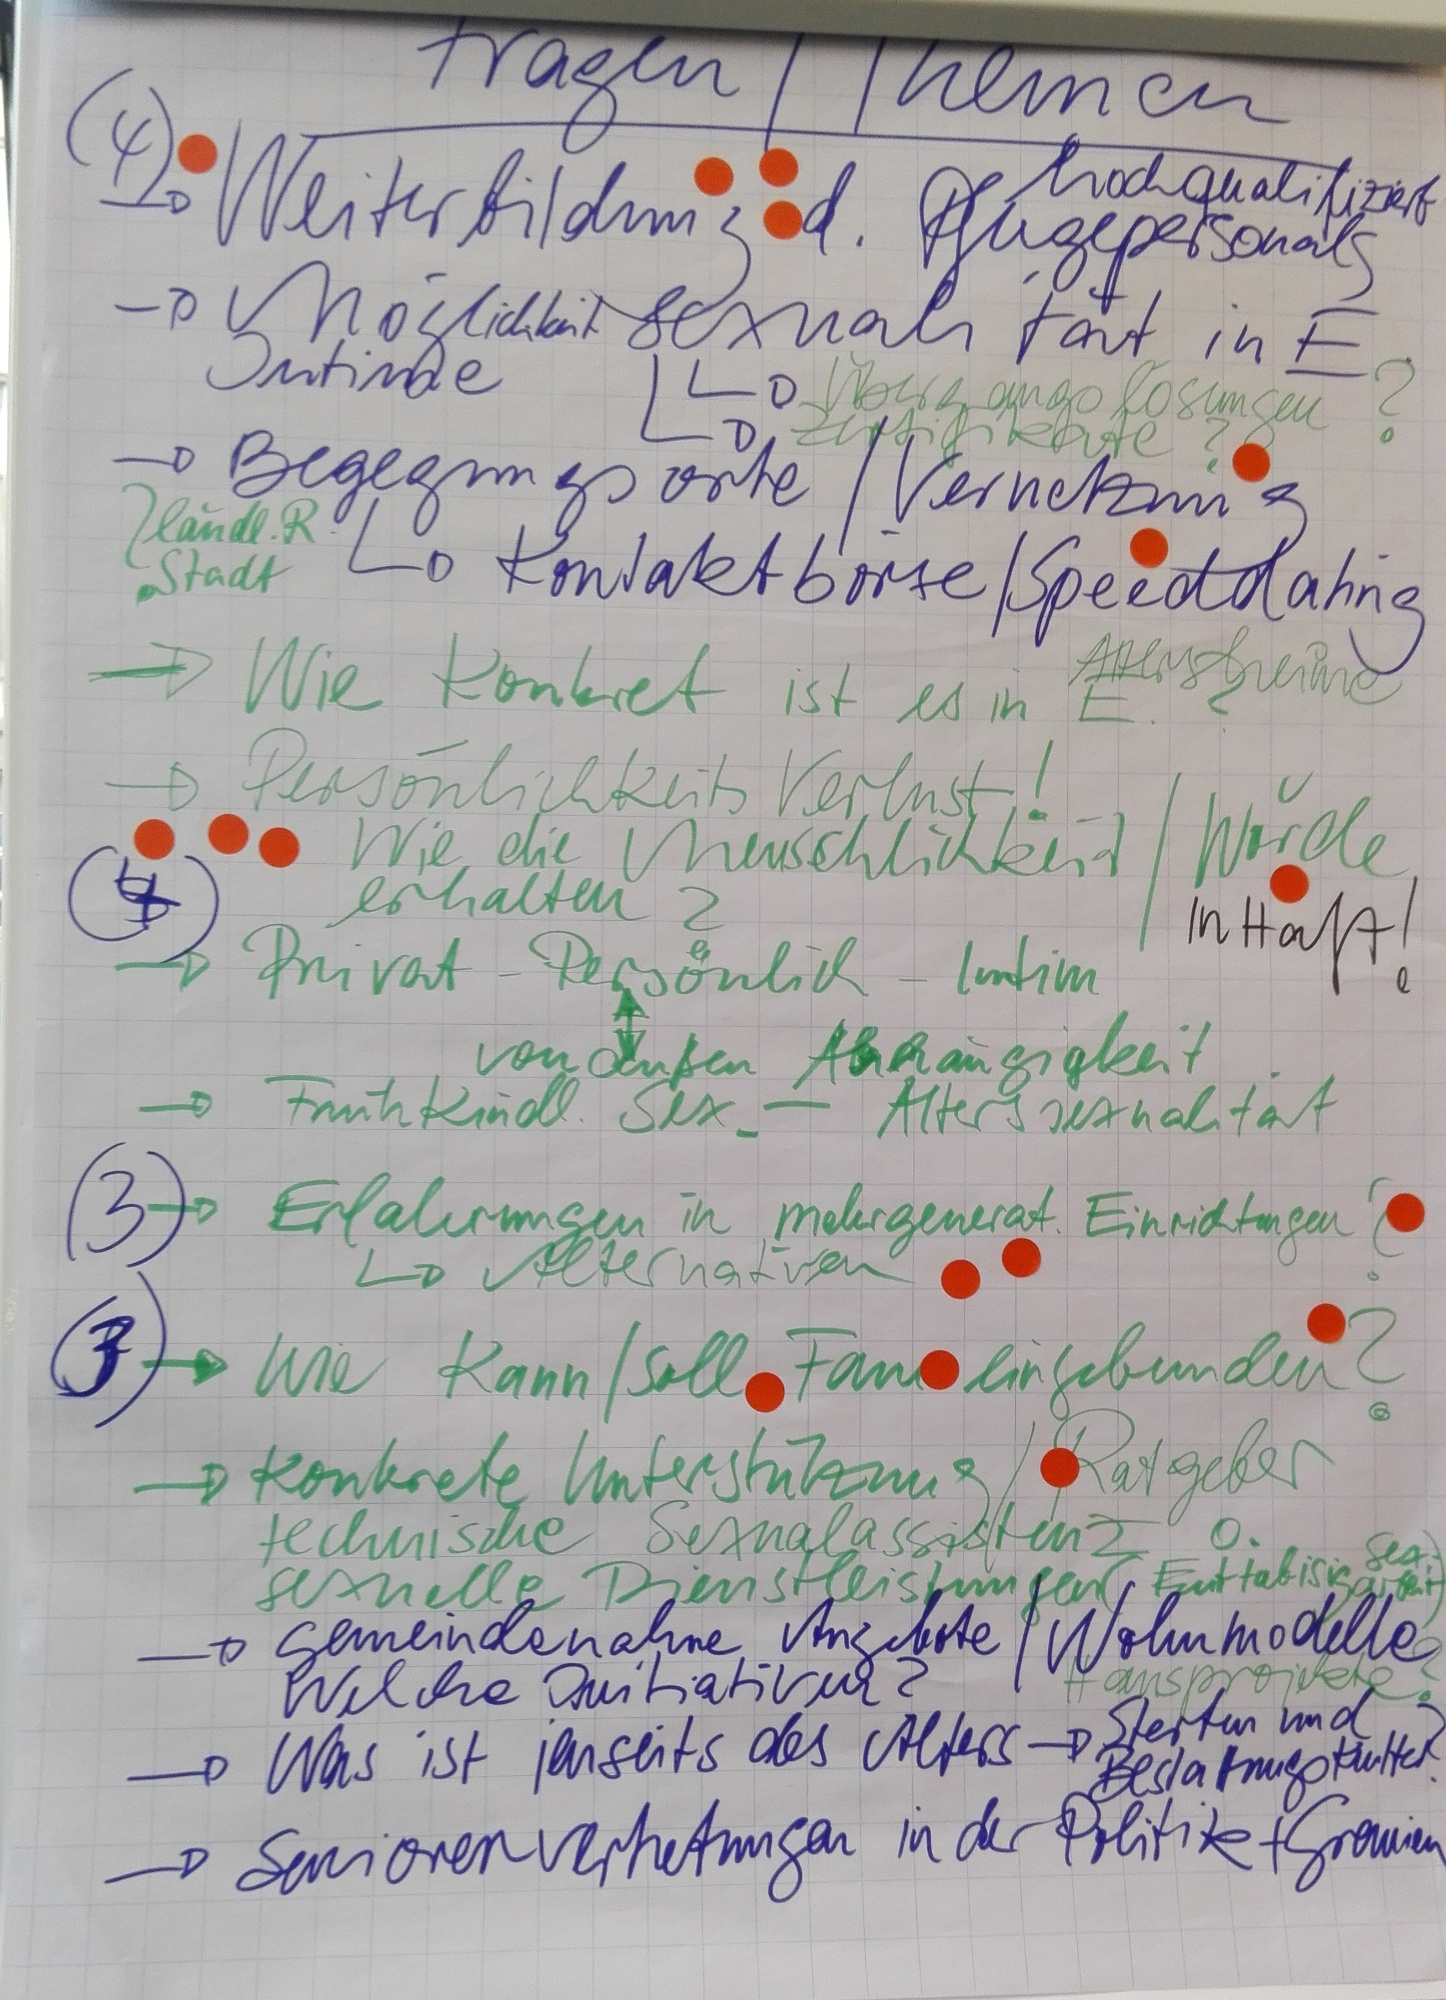 Fragen / Themen
(4) → Weiterbildung d. Pflegepersonals hochqualifiziert
→ Möglichkeit Sexualität in E
Intimde
↳ Übergangslösungen ?
↳ Zertifikate ?
→ Begegnungsorte / Vernetzung
? ländl. R.
Stadt
↳ Kontaktbörse / Speeddating
→ Wie konkret ist es in E. ? Altersheime
→ Persönlichkeits Verlust !
Wie die Menschlichkeit / Würde
erhalten ?
in Haft !
(4)
→ Privat - Persönlich - Intim
von außen Abhängigkeit
→ Frühkindl. Sex. - Alterssexualität
(3) → Erfahrungen in mehrgenerat. Einrichtungen ?
↳ Alternativen
(3) → Wie kann / soll Fam eingebunden ?
→ Konkrete Unterstützung / Ratgeber
technische Sexualassistenz o.
sexuelle Dienstleistungen
→ gemeindenahne Angebote / Wohnmodelle
Welche Initiativen ? Hausprojekte ?
→ Was ist jenseits des Alters → Sterben und
Bestattungskultur ?
→ Seniorenvertretungen in der Politik + Gremien